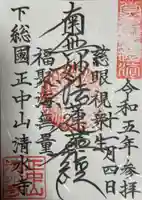 令和五年参拝
十二月四日
慈眼視衆生
南無妙法蓮華経
福聚海無量
下総國正中山清水寺